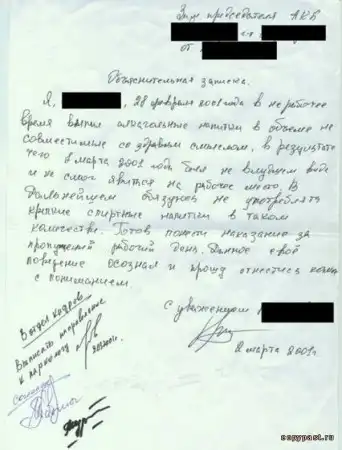 Зам председателя АКБ
от
Объяснительная записка.
Я, 28 февраля 2001 года в не рабочее
время выпил алкогольные напитки в объеме не
совместимые со здравым смыслом, в результате
чего 1 марта 2001 года был не в лучшем виде
и не смог явиться на рабочее место. В
дальнейшем обязуюсь не употреблять
крепкие спиртные напитки в таком
количестве. Готов понести наказание за
пропущенный рабочий день. Данное своё
поведение осознал и прошу отнестись ко мне
с пониманием.
С уважением
2 марта 2001г.
В отдел кадров
Выписать направление
к наркологу
согласен
copypast.ru